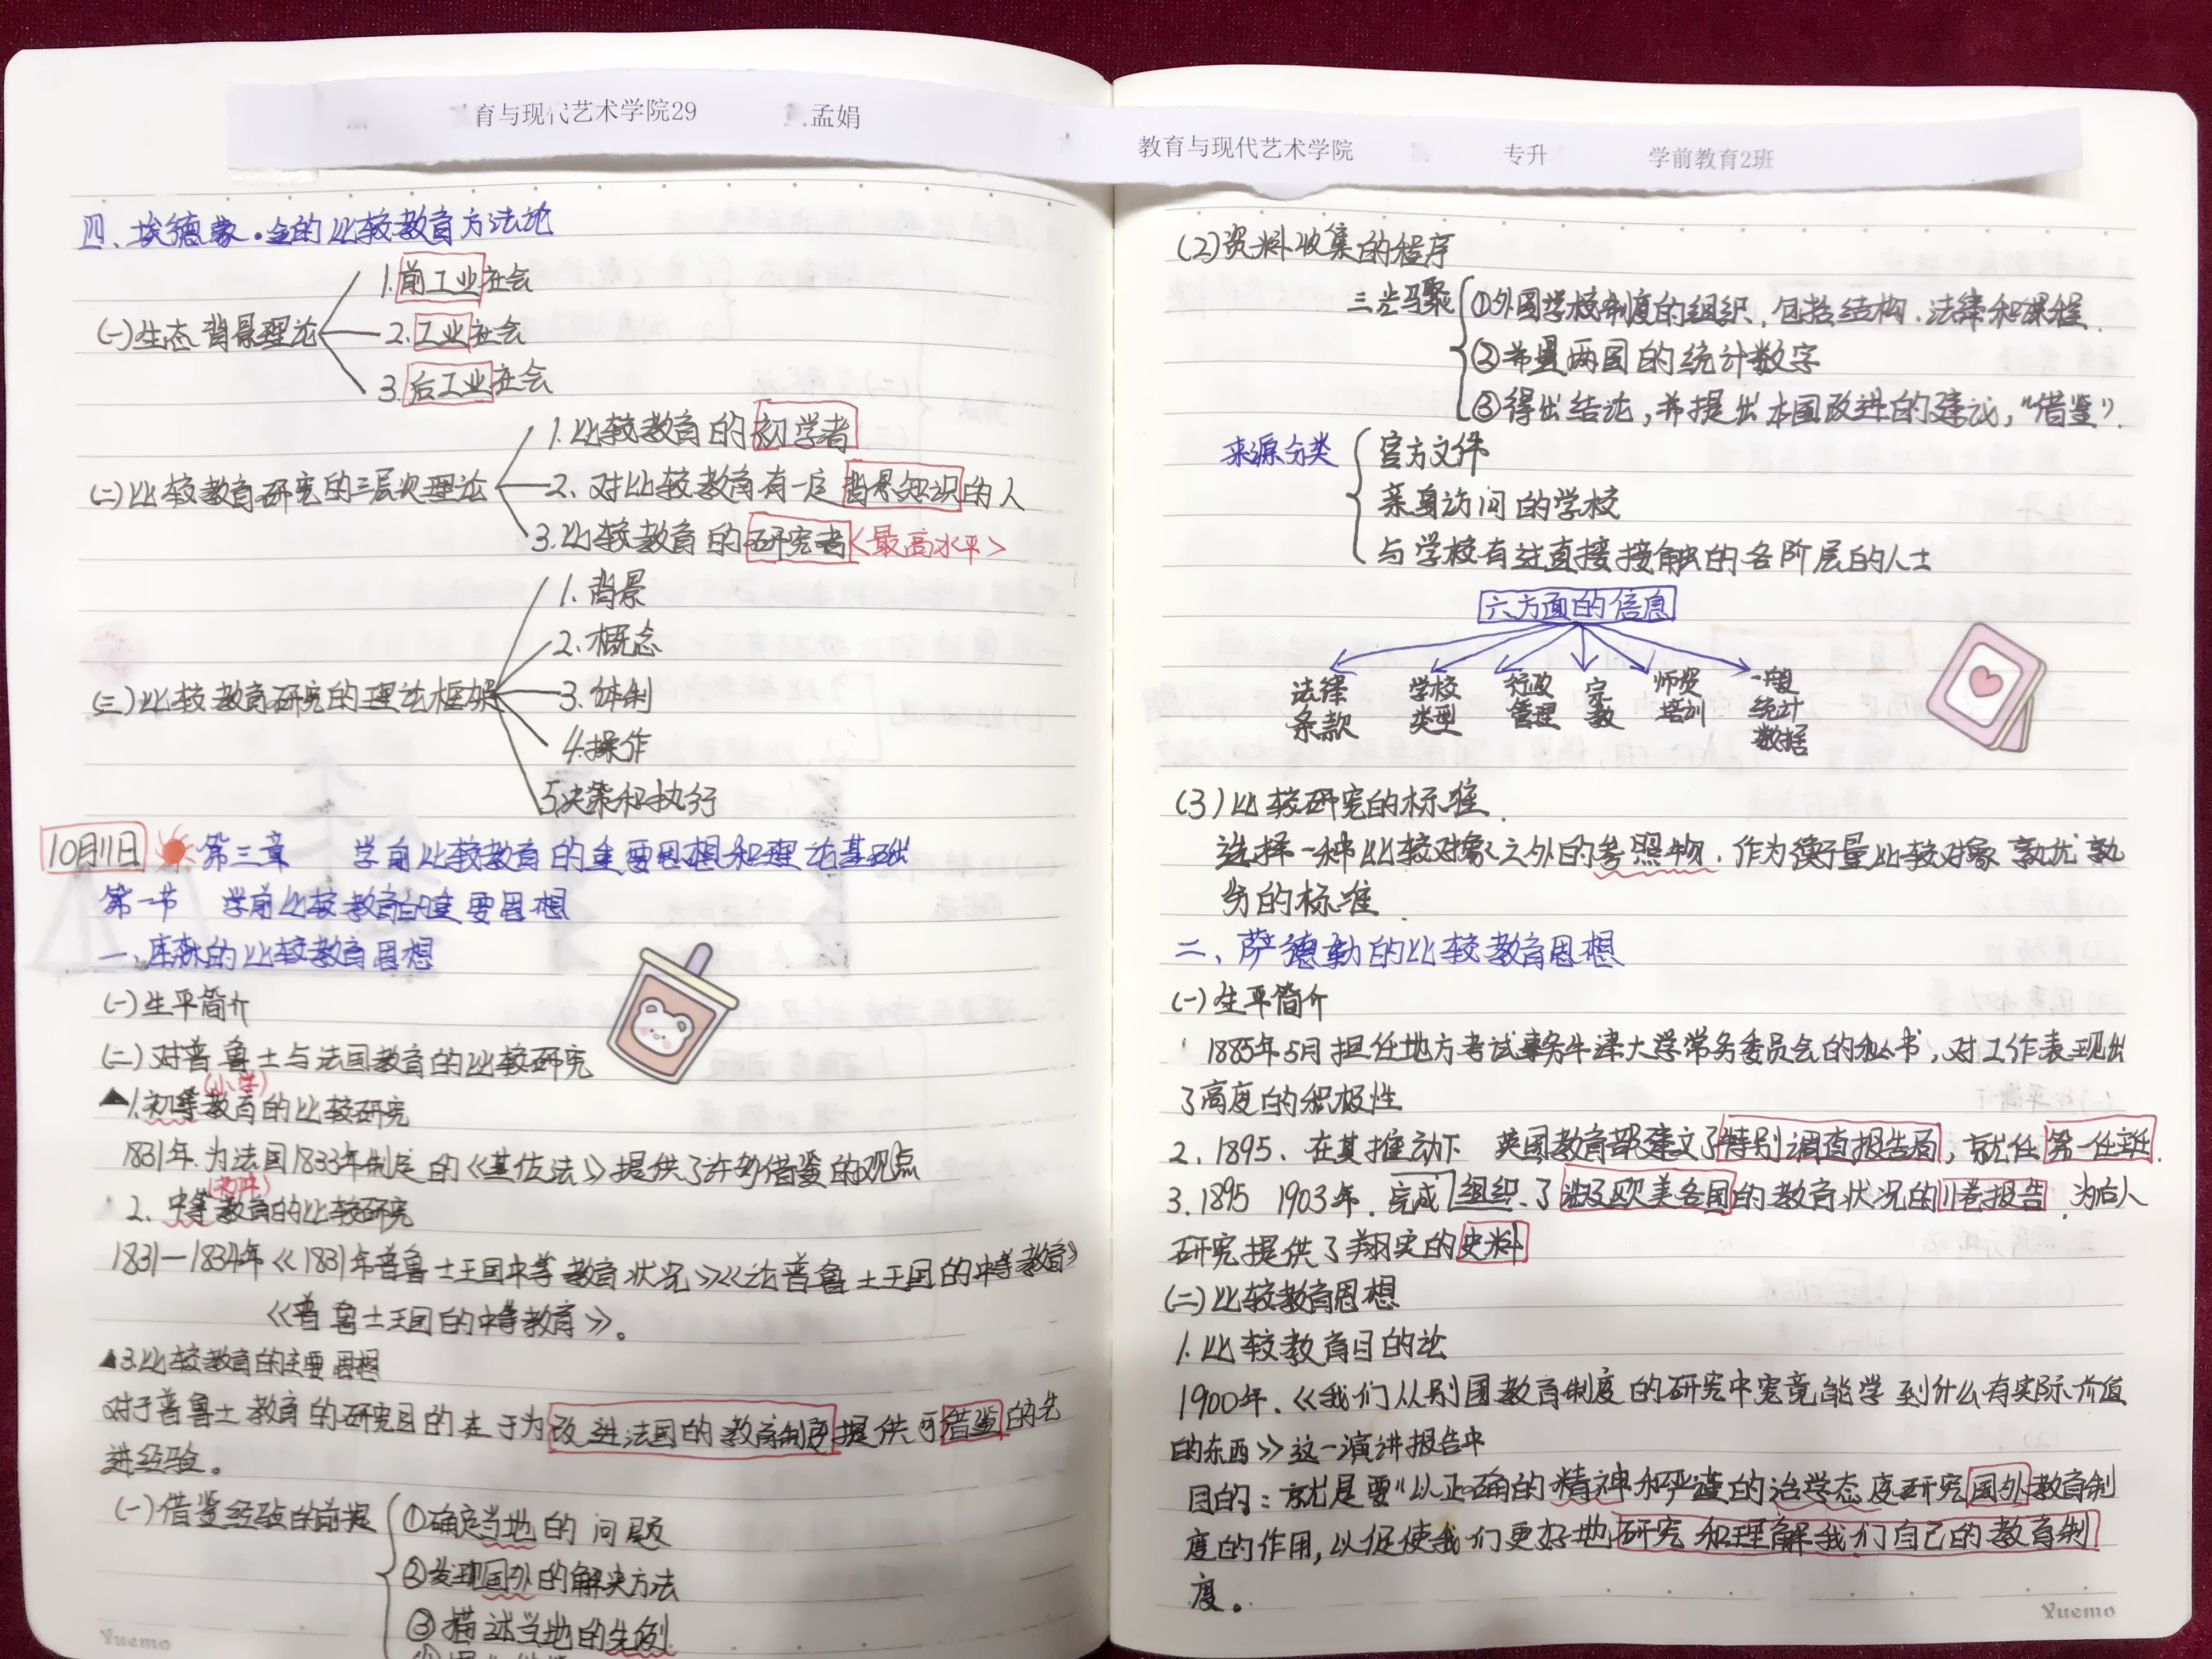 育与现代艺术学院29 孟娟
四、埃德蒙·金的比较教育方法论
(一)生态背景理论
1.前工业社会
2.工业社会
3.后工业社会
(二)比较教育研究的三层次理论
1.比较教育的初学者
2、对比较教育有一定背景知识的人
3.比较教育的研究者<最高水平>
(三)比较教育研究的理论框架
1.背景
2.概念
3.体制
4.操作
5.决策和执行
10月11日 第三章 学前比较教育的重要思想和理论基础
第一节 学前比较教育的重要思想
一、库森的比较教育思想
(一)生平简介
(二)对普鲁士与法国教育的比较研究
(小学)
▲1.初等教育的比较研究
1831年.为法国1833年制定的《基佐法》提供了许多借鉴的观点
(初中)
2.中等教育的比较研究
1831—1834年《1831年普鲁士王国中等教育状况》《论普鲁士王国的中等教育》
《普鲁士王国的中等教育》。
▲3.比较教育的主要思想
对于普鲁士教育的研究目的在于为改进法国的教育制度提供可借鉴的先
进经验。
(一)借鉴经验的前提
①确定当地的问题
②发现国外的解决方法
③描述当地的先例
Yuemo
教育与现代艺术学院 专升 学前教育2班
(2)资料收集的程序
三步骤
①外国学校制度的组织,包括结构.法律和课程.
②希望两国的统计数字
③得出结论,并提出本国改进的建议,"借鉴".
来源分类
官方文件
亲身访问的学校
与学校有过直接接触的各阶层的人士
六方面的信息
法律条款 学校类型 行政管理 宗教 师资培训 一般统计数据
(3)比较研究的标准.
选择一种比较对象之外的参照物.作为衡量比较对象孰优孰
劣的标准.
二、萨德勒的比较教育思想
(一)生平简介
1885年5月担任地方考试事务牛津大学常务委员会的秘书,对工作表现出
了高度的积极性
2.1895、在其推动下 英国教育部建立了特别调查报告局,就任第一任主任.
3.1895 1903年.完成组织.了涉及欧美各国的教育状况的11卷报告.为后人
研究提供了翔实的史料
(二)比较教育思想
1.比较教育目的论
1900年.《我们从别国教育制度的研究中究竟能学到什么有实际价值
的东西》这一演讲报告中
目的:就是要"以正确的精神和严谨的治学态度研究国外教育制
度的作用,以促使我们更好地研究和理解我们自己的教育制
度。
Yuemo